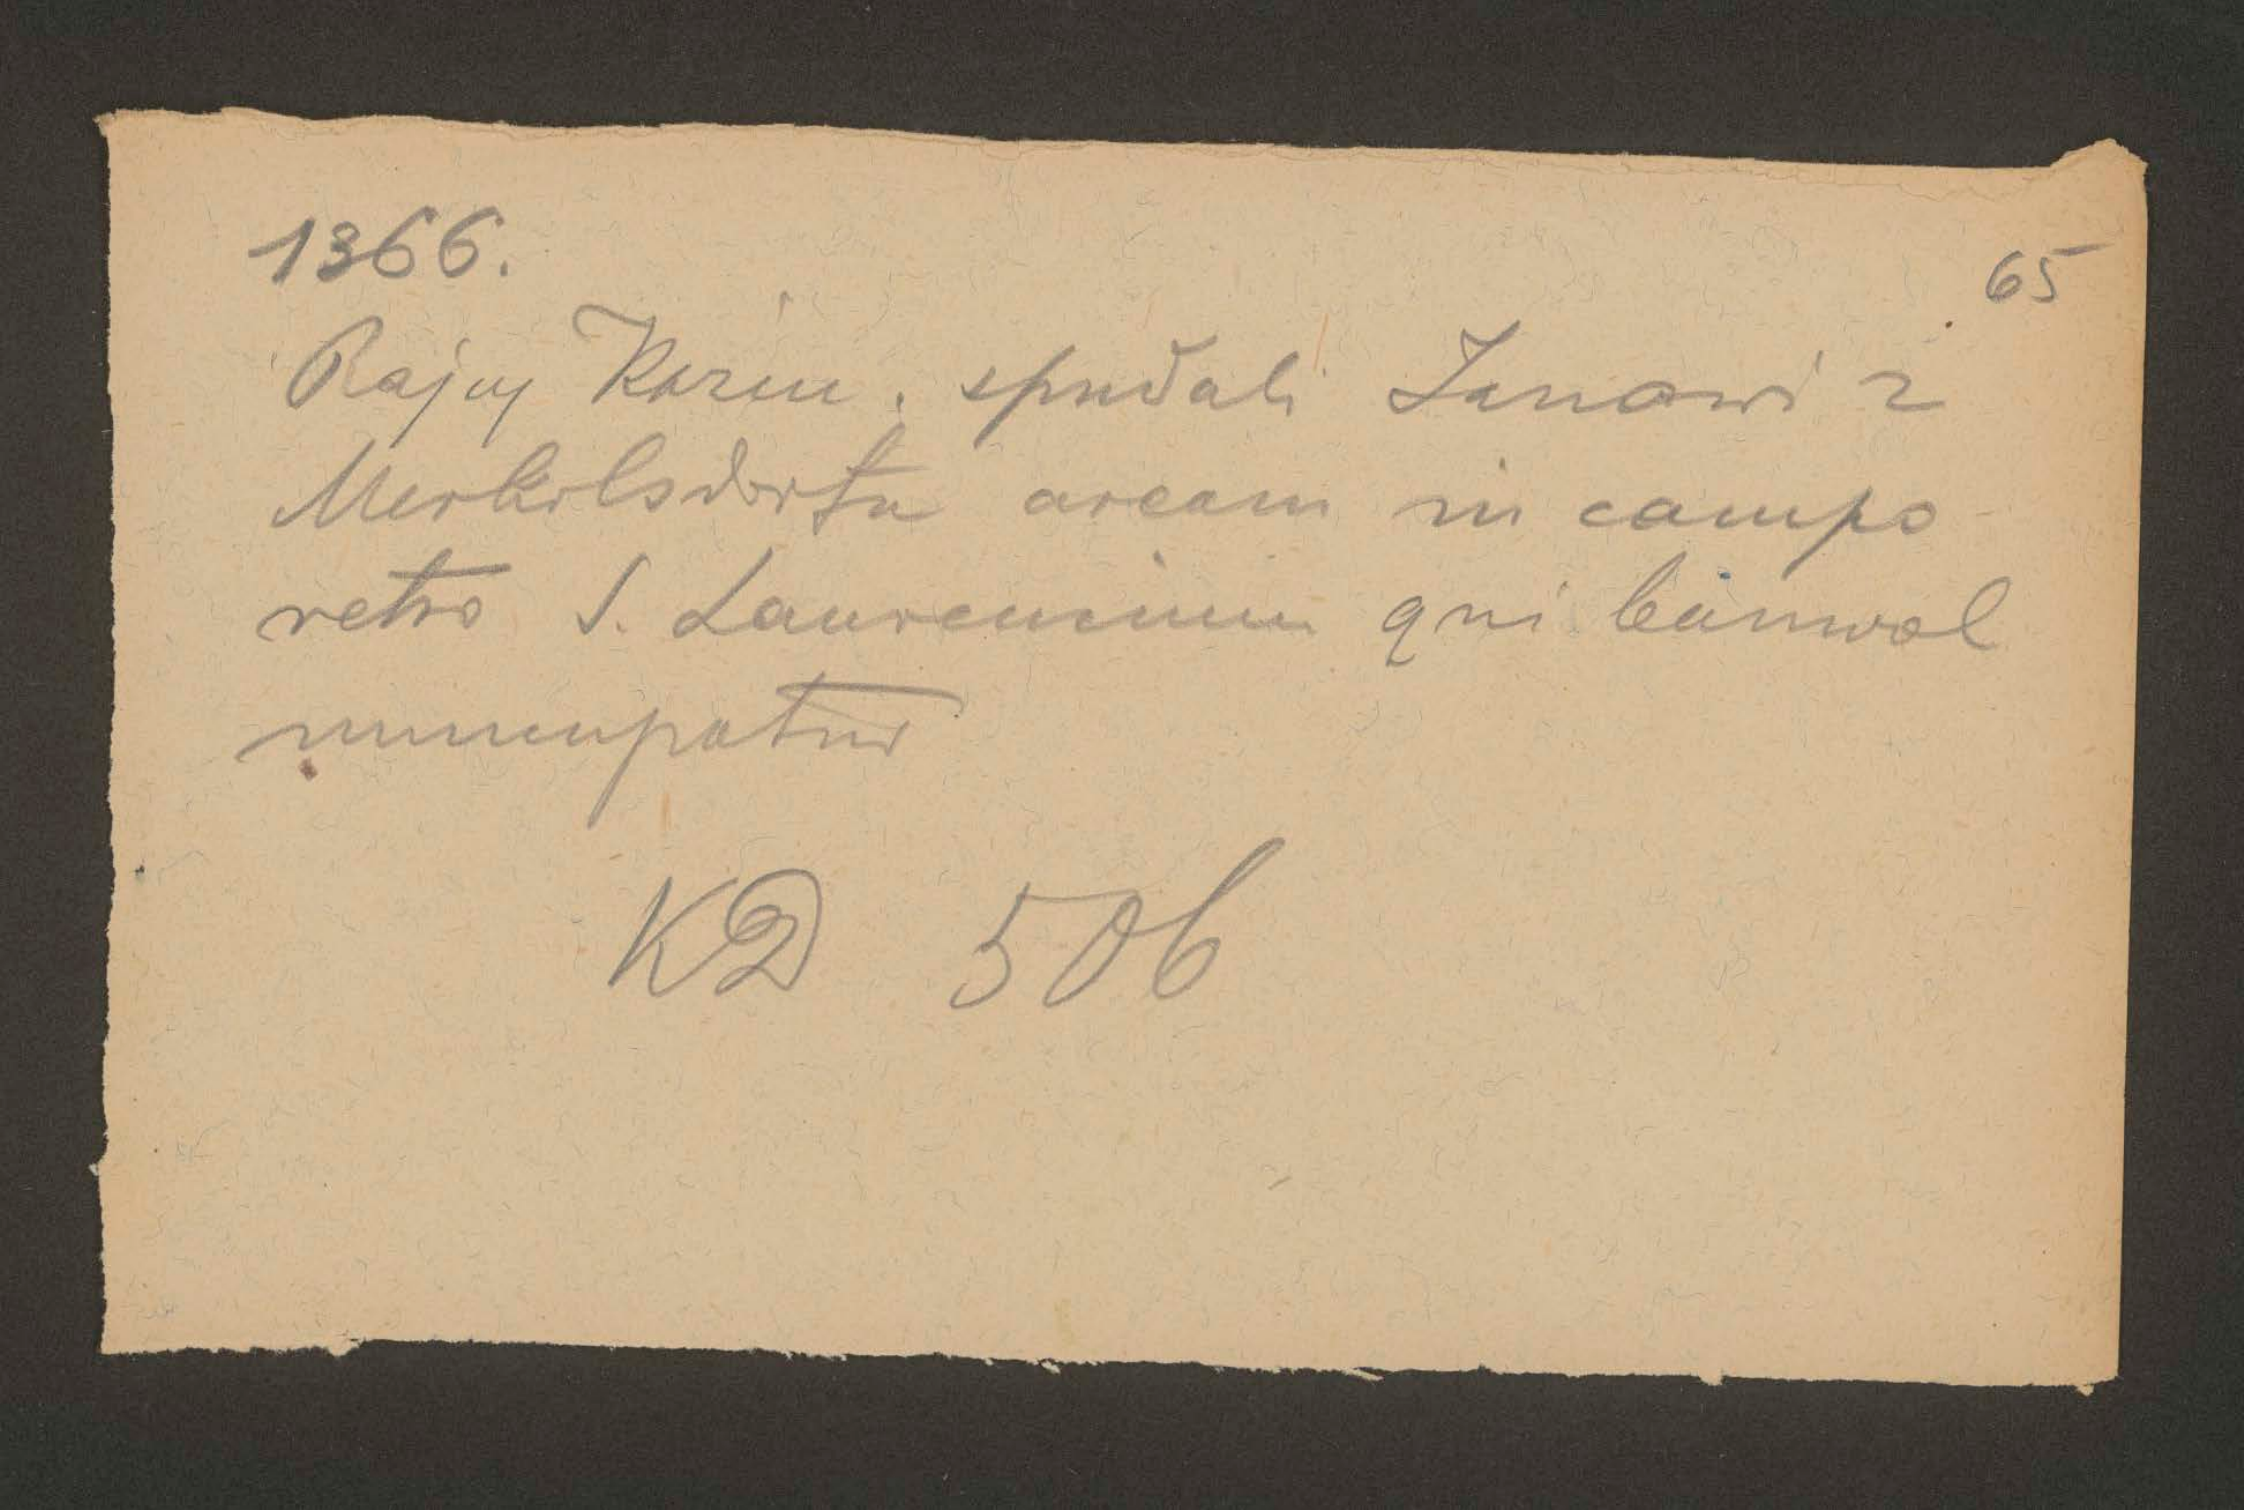 1366.
65
Rajcy Kazim. sprzedali Janowi z
Merkilsdorfu aream in campo
retro S. Laurencium qui banwol
nuncupatur
KD 506